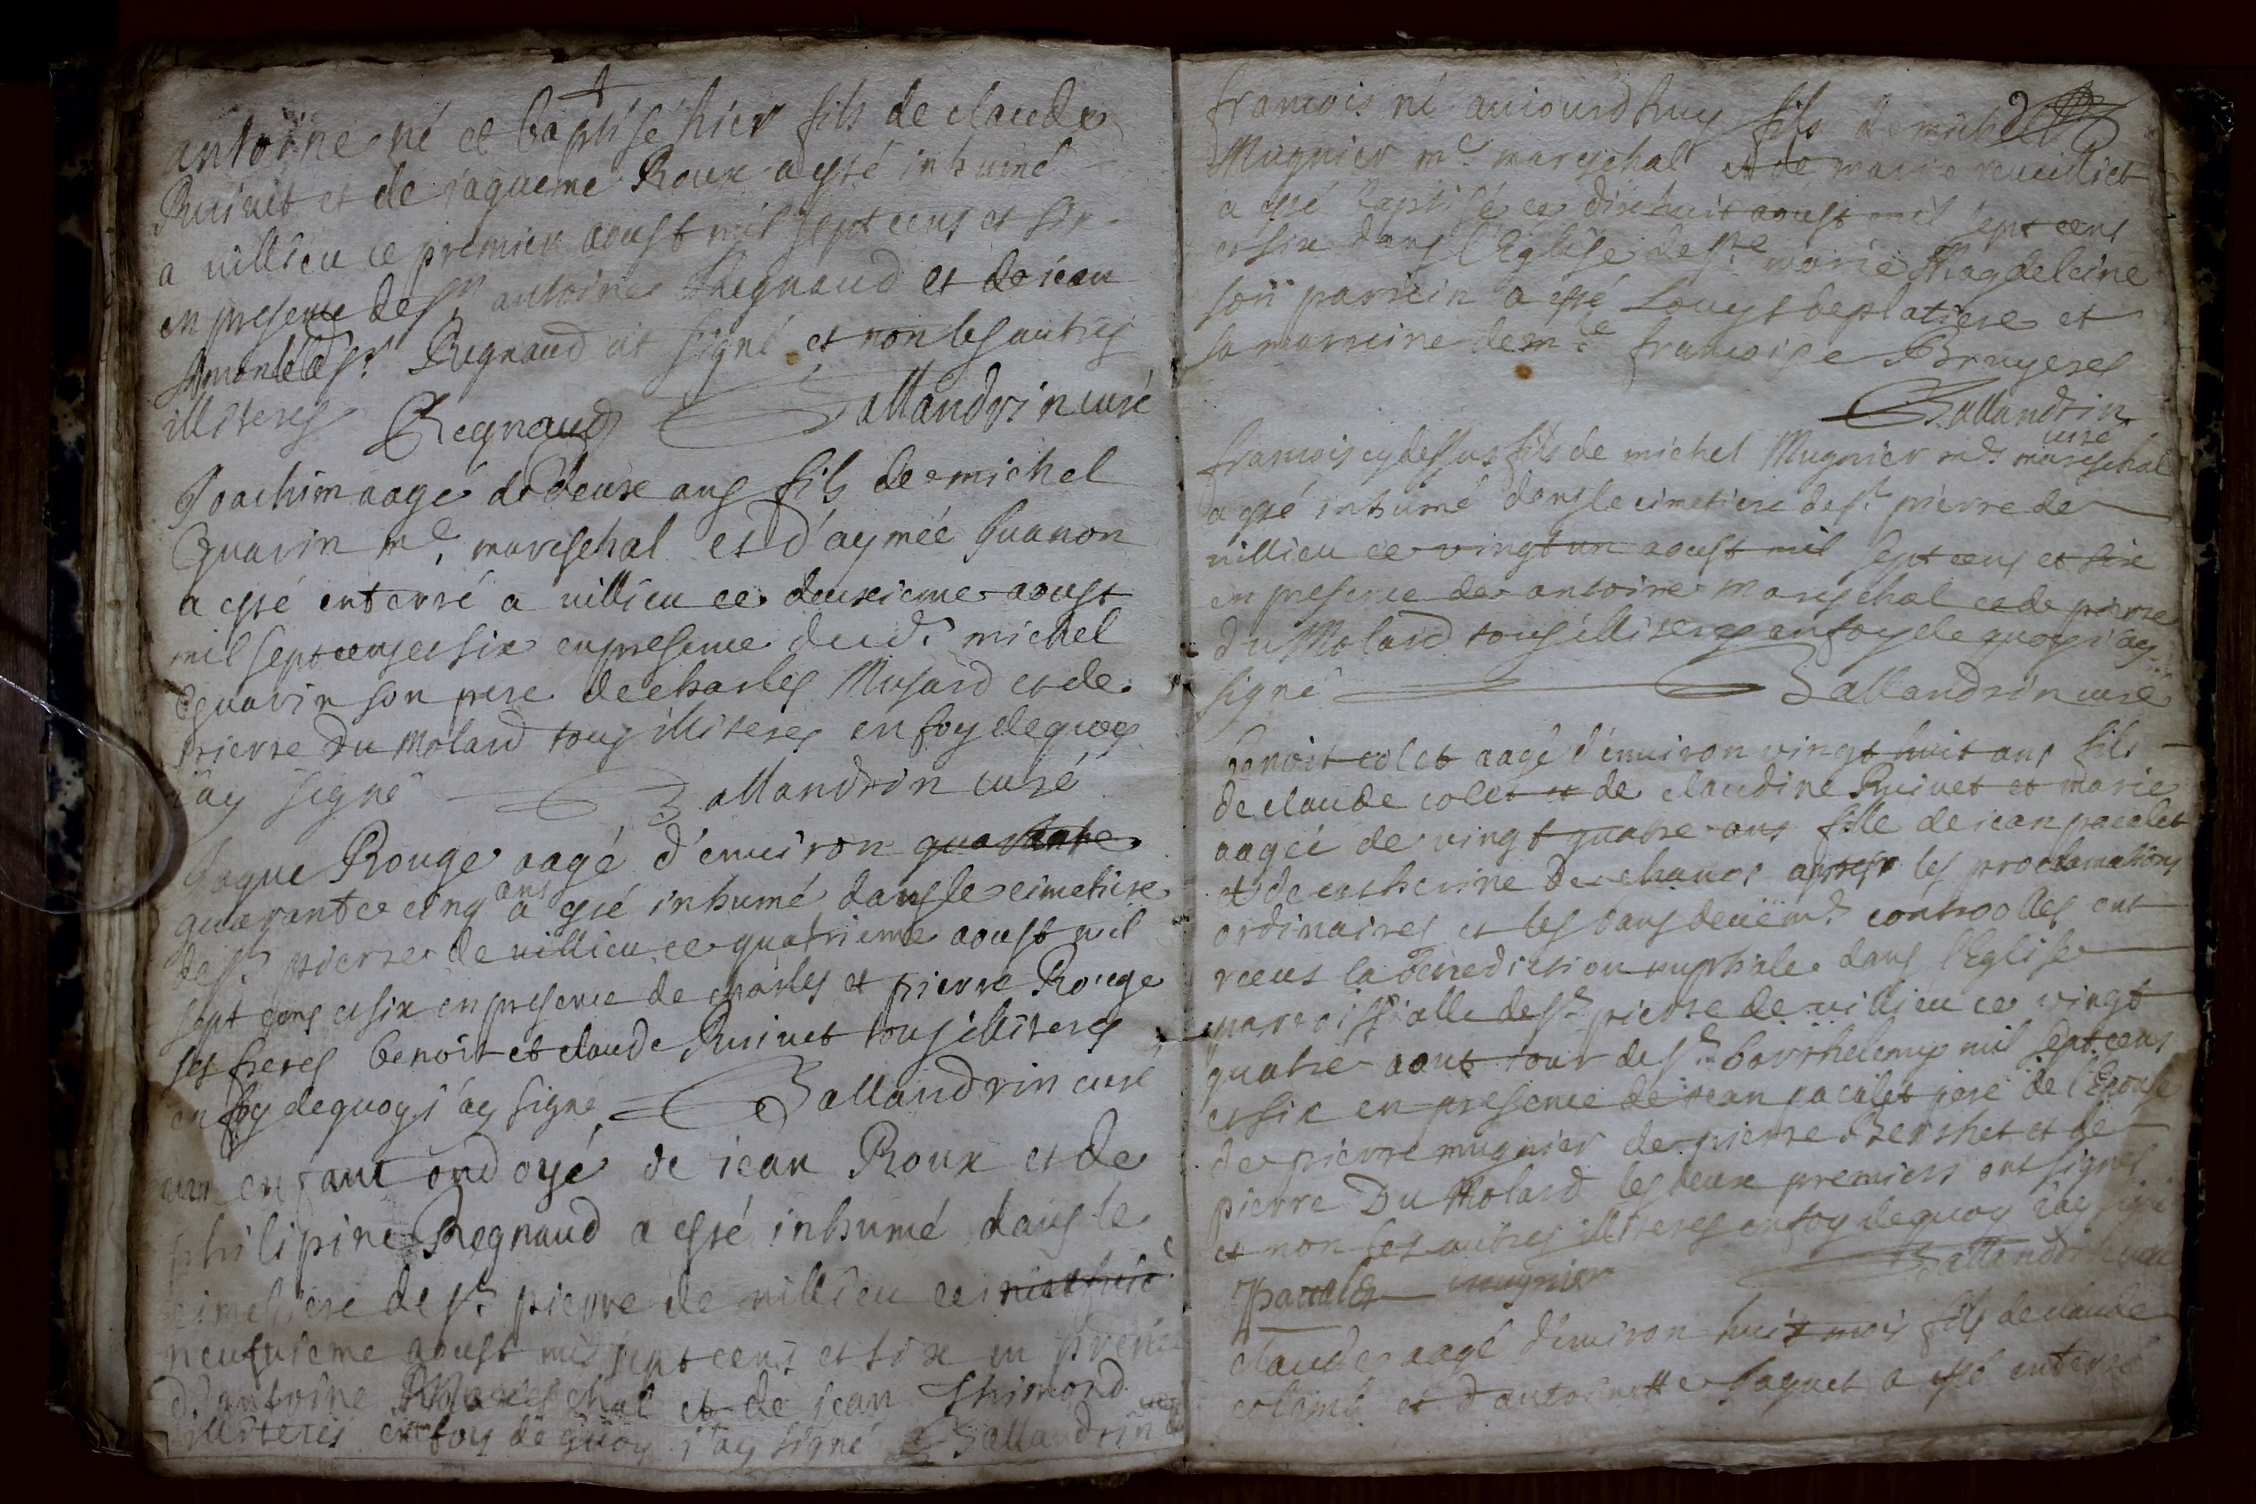 antoine né et baptisé hier fils de claude
Ruivet et de jaqueme Roux a esté inhumé
a villieu ce premier aoust mil sept cens et six
en presence de sr. antoine Regnaud et de jean
led. sr. Regnaud ait signé et non les autres
illiteres Regnaud Ballandrin curé
Joachim aagé de deux ans fils de michel
Guarin me. mareschal et d'aymée Juanon
a esté enterré a villieu ce deuxieme aoust
mil sept cens et six en presence dud. michel
Guarin son pere de charles Musard et de
pierre Du Molard tous illiteres en foy de quoy
i'ay signé Ballandrin curé
Jaque Rouge aagé d'environ quarante
quarante cinq ans a esté inhumé dans le cimetiere
de st. pierre de villieu ce quatrieme aoust mil
sept cens et six en presence de charles et pierre Rouge
ses freres benoit et claude Ruivet tous illiteres
en foy de quoy i'ay signé Ballandrin curé
un enfant ondoyé de jean Roux et de
philipine Regnaud a esté inhumé dans le
cimetiere de st. pierre de villieu ce
neufvieme aoust mil sept cens et six en presence
d'antoine Mareschal et de jean Thimond
illiteres en foy de quoy j'ay signé Ballandrin curé
francois né auiourdhuy fils de michel
Mugnier me. mareschal et de marie revilliet
a esté baptisé ce dixhuit aoust mil sept cens
et six dans l'Eglise de ste. marie Magdeleine
son parrein a esté Louys deplatiere et
sa marreine demlle francoise Bruyeres
Ballandrin
curé
francois cy dessus fils de michel Mugnier me. mareschal
a esté inhumé dans le cimetiere de st. pierre de
villieu ce vingt un aoust mil sept cens et six
en presence de antoine mareschal et de pierre
Du Molard tous illiteres en foy de quoy i'ay
signé Ballandrin curé
benoit colet aagé d'environ vingt huit ans fils
de claude colet et de claudine Ruivet et marie
aagée de vingt quatre ans fille de jean pacalet
et de catherine apres les proclamations
ordinaires et les bans deüëmt. controolles ont
receus la benediction nuptiale dans l'Eglise
parroissialle de st. pierre de villieu ce vingt
quatre aout iour de st. barthelemy mil sept cens
et six en presence de jean pacalet pere de l'Epouse
de pierre mugnier de pierre Berthet et de
pierre Du Molard les deux premiers ont signes
et non les autres illiteres en foy de quoy i'ay signé
Pacalet mugnier Ballandrin curé
claude aagé d'environ huit mois fils de claude
et d'antoinette Jaquet a esté enterré